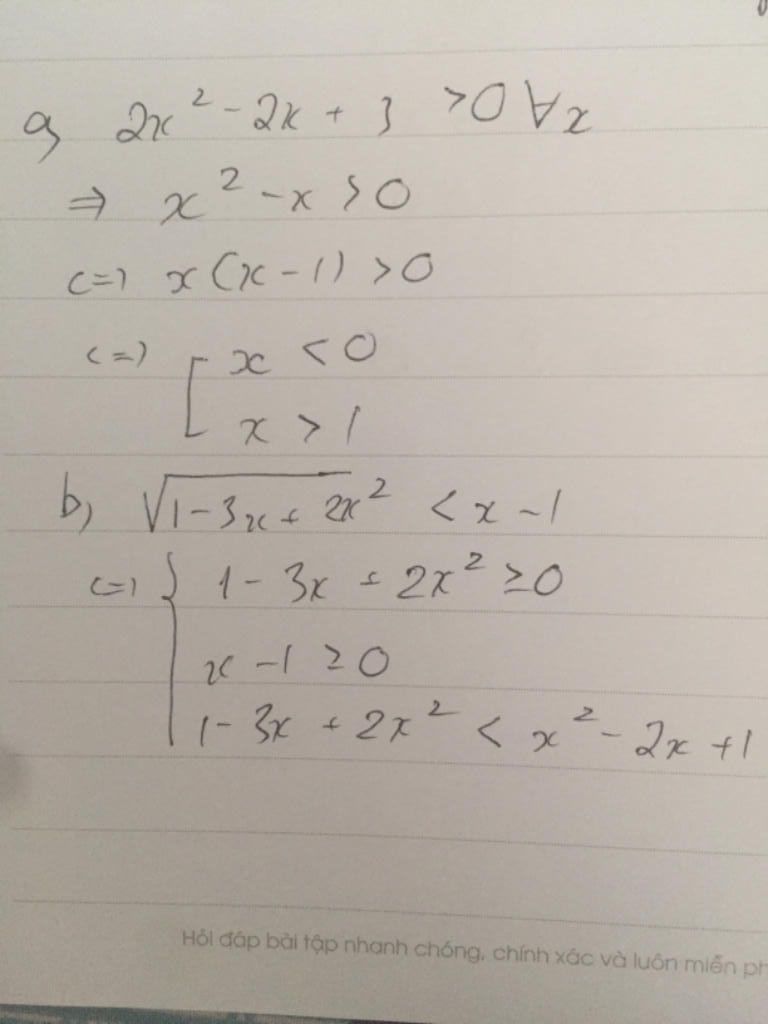 a, 2x² - 2x + 3 > 0 ∀x
⇒ x² - x > 0
<=> x(x - 1) > 0
<=> [ x < 0
x > 1
b, √1 - 3x + 2x² < x - 1
<=> { 1 - 3x + 2x² ≥ 0
x - 1 ≥ 0
1 - 3x + 2x² < x² - 2x + 1
Hỏi đáp bài tập nhanh chóng, chính xác và luôn miễn ph